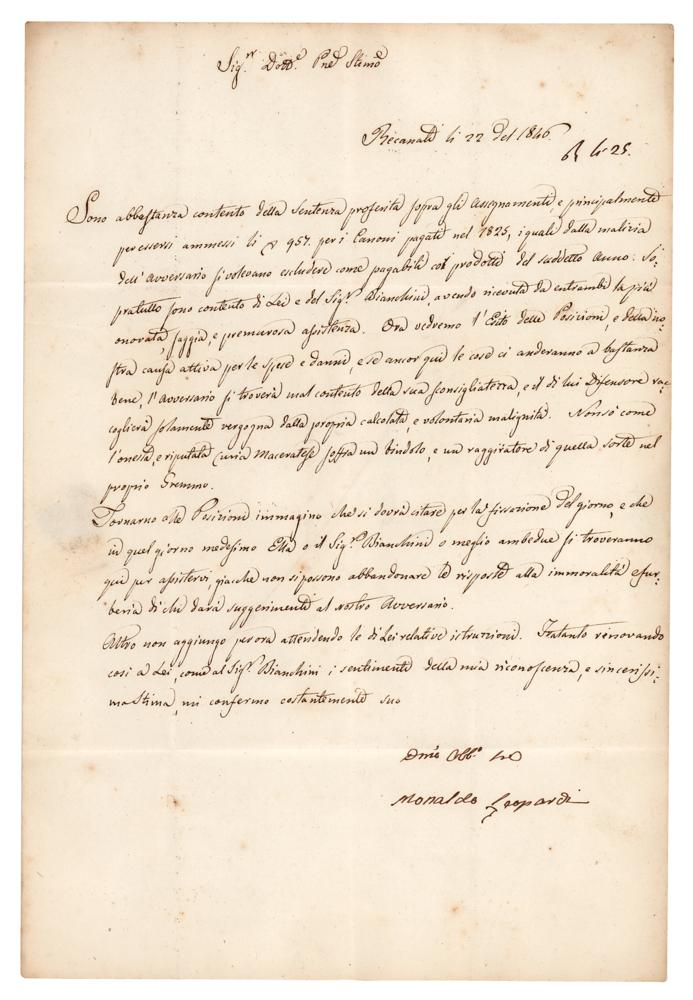 Sig.r Dott.e Pne Stimo
Recanati li 22 del 1846
li 25.
Sono abbastanza contento della Sentenza proferita sopra gli Assegnamenti, e principalmente
per essersi ammessi li 957. per i Canoni pagati nel 1825, i quali dalla malizia
dell'Avversario si volevano escludere come pagabili coi prodotti del suddetto Anno: So=
pratutto sono contento di Lei e del Sig.r Bianchini, avendo ricevuta da entrambi la più
onorata, saggia, e premurosa assistenza. Ora vedremo l'Esito delle Posizioni, e della no=
stra causa attiva per le spese e danni, e se ancor quì le cose ci anderanno a bastanza
bene, l'Avversario si troverà mal contento della sua sconsigliatezza, e il di lui Difensore rac=
coglierà solamente vergogna dalla propria calcolata, e volontaria malignità. Non sò come
l'onesta, e riputata Curia Maceratese soffra un bindolo, e un raggiratore di quella sorte nel
proprio Gremmo.
Tornarno alle Posizioni immagino che si dovrà citare per la fissazione del giorno, e che
in quel giorno medesimo Ella o il Sig.r Bianchini o meglio ambedue si troveranno
quì per assistervi, giacche non si possono abbandonare le risposte alla immoralità e fur=
beria di chi darà suggerimenti al nostro Avversario.
Altro non aggiungo per ora attendendo le di Lei relative istruzioni. Fratanto rinnovando
così a Lei, come al Sig.r Bianchini i sentimenti della mia riconoscenza, e sincerissi=
ma Stima, mi confermo costantemente suo
Dmo Obb.o
Monaldo Leopardi